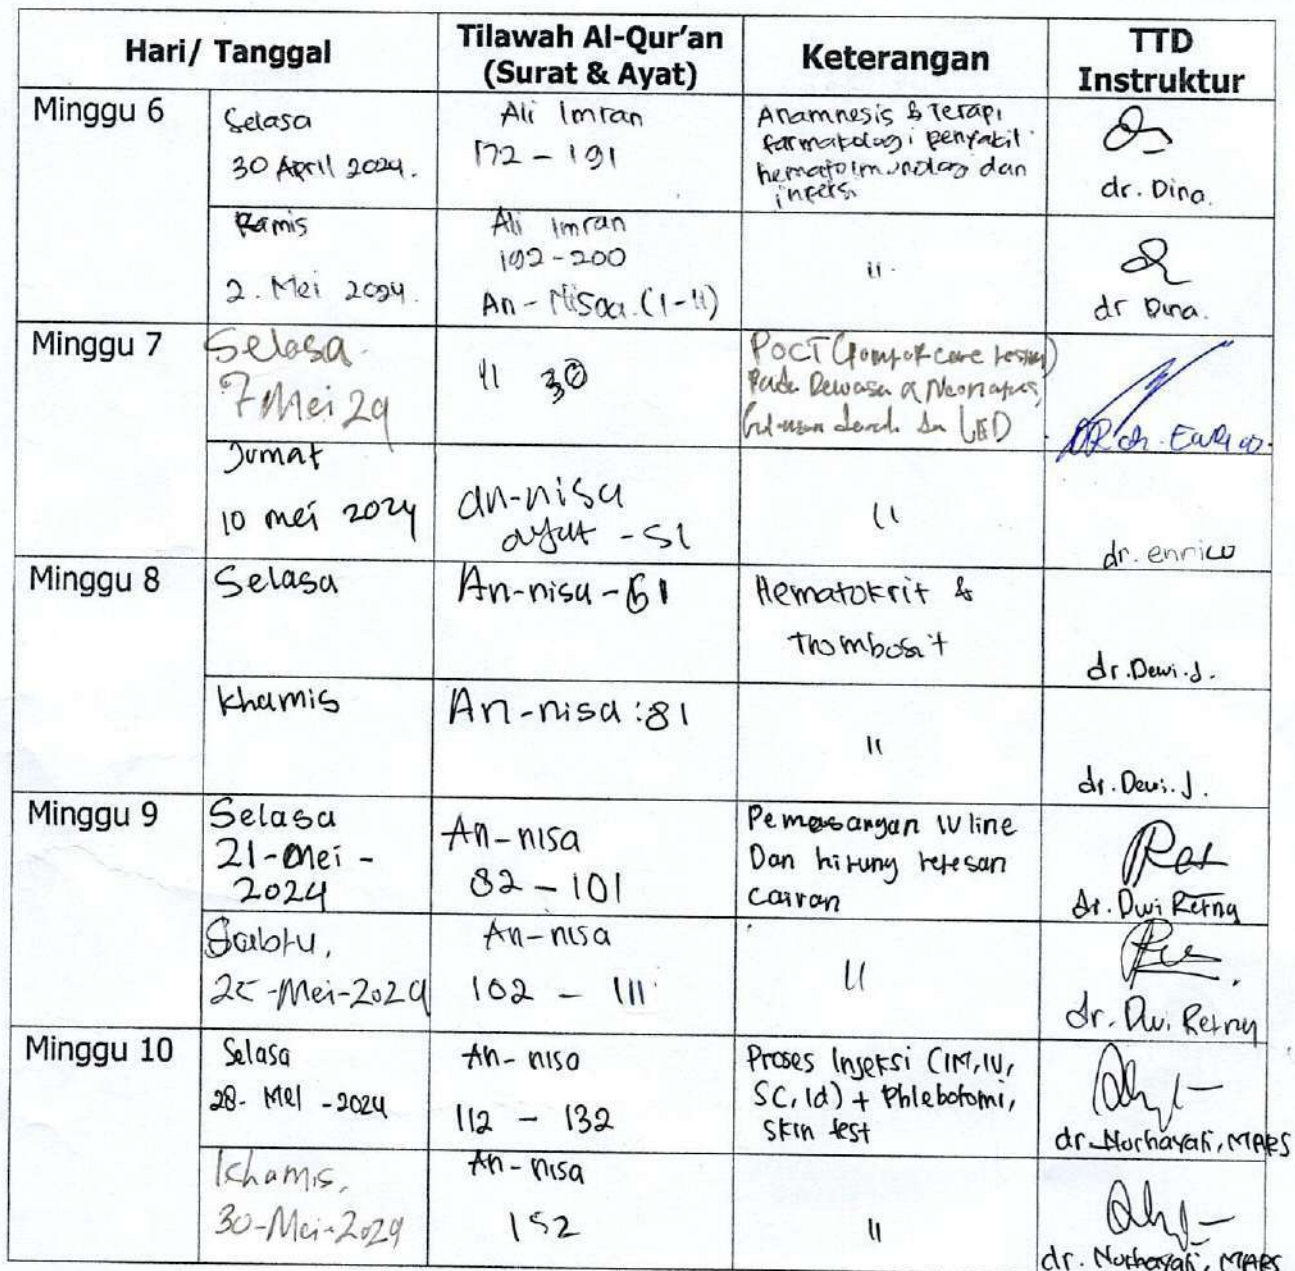 Hari/ Tanggal
Tilawah Al-Qur'an
(Surat & Ayat)
Keterangan
TTD
Instruktur
Minggu 6
Selasa
30 April 2024.
Ali Imran
172 - 191
Anamnesis & Terapi
farmakologi penyakit
hematoimunologi dan
infeksi
dr. Dina.
Kamis
2. Mei 2024.
Ali Imran
192-200
An-Nisaa. (1-11)
11.
dr Dina.
Minggu 7
Selasa.
7 Mei 24
11 30
POCT (
Pada Dewasa & Neonatus,
darah dan LED
Jumat
10 mei 2024
an-nisa
ayat - 51
11
dr. enrico
Minggu 8
Selasa
An-nisa-61
Hematokrit &
Thombosit
dr.Dewi.J.
Khamis
An-nisa:81
11
dr.Dewi.J.
Minggu 9
Selasa
21-Mei-
2024
An-nisa
82 - 101
Pemasangan IV line
Dan hitung tetesan
cairan
dr. Dwi Retno
Sabtu,
25-Mei-2024
An-nisa
102 - 111
11
dr. Dwi Retno
Minggu 10
Selasa
28- Mei -2024
An-nisa
112 - 132
Proses Injeksi (IM, IV,
SC, Id) + Phlebotomi,
skin test
dr. Norhayati, MARS
Khamis,
30-Mei-2024
An-nisa
152
11
dr. Norhayati, MARS